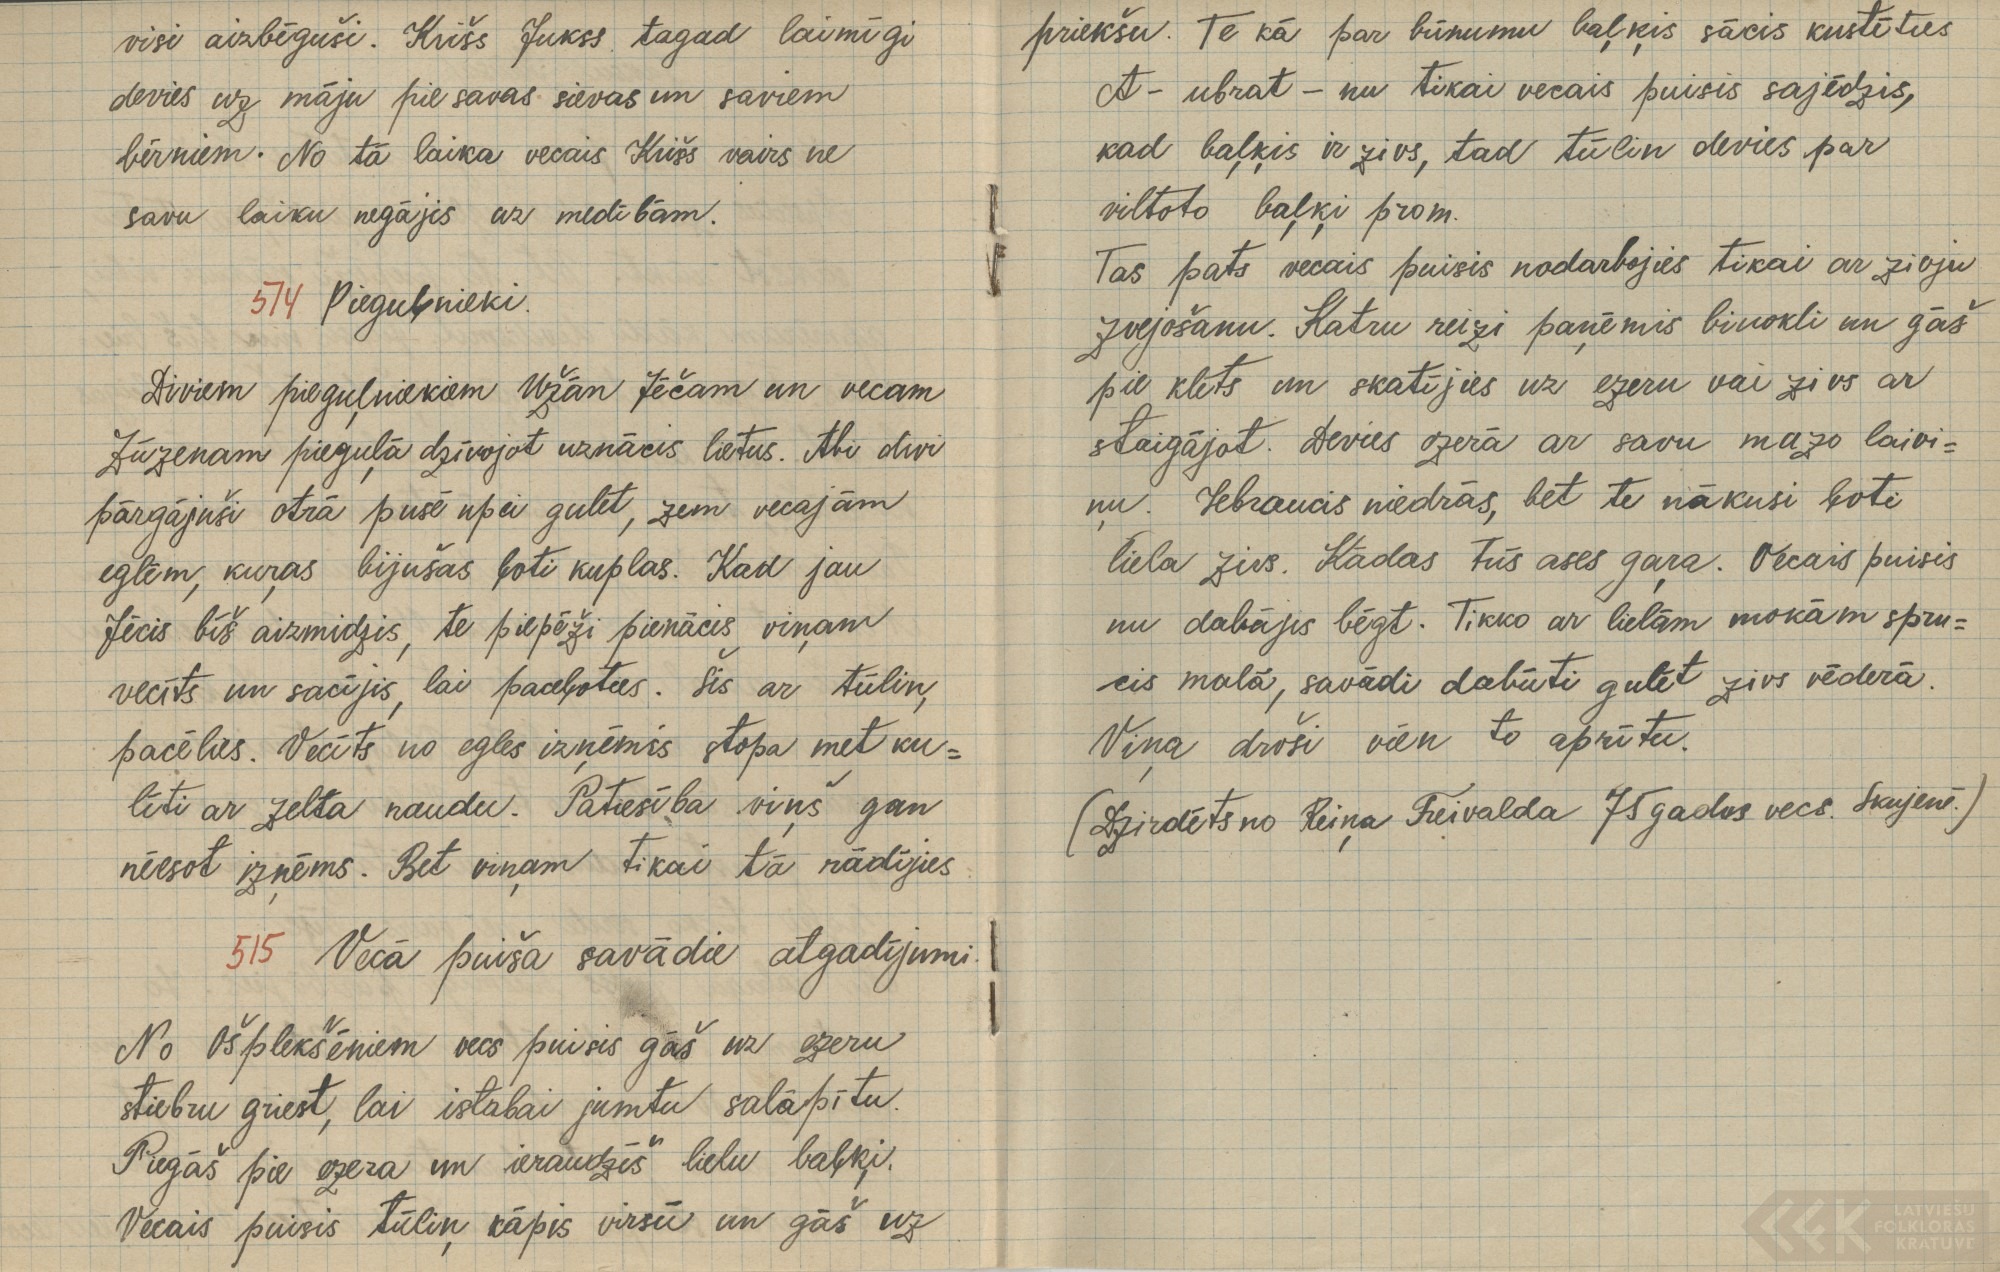 visi aizbēguši. Krišs Jukss tagad laimīgi
devies uz māju pie savas sievas un saviem
bērniem. No tā laika vecais Krišs vairs ne
savu laiku negājis uz medībām.
574 Pieguļnieki.
Diviem pieguļniekiem Užān Jēčam un vecam
Zūzenam pieguļā dzīvojot uznācis lietus. Abi divi
pārgājuši otrā pusē upei gulēt, zem vecajām
eglēm, kuŗas bijušas ļoti kuplas. Kad jau
Jēcis bīš aizmidzis, te piepēži pienācis viņam
vecīts un sacījis, lai paceļoties. Šis ar tūlin,
pacēlies. Vecīts no egles izņēmis stopa met ku=
līti ar zelta naudu. Patiesība viņš gan
nēesot izņēms. Bet viņam tikai tā rādījies
515 Vecā puiša savādie atgadījumi.
No Ošplekšēniem vecs puisis gāš uz ezeru
stiebru griest, lai istabai jumtu salāpītu.
Piegāš pie ezera un ieraudzīš lielu baļķi.
Vecais puisis tūliņ kāpis virsū un gāš uz
priekšu. Te kā par brīnumu baļķis sācis kustēties
A - ubrat - nu tikai vecais puisis sajēdzis,
kad baļķis ir zivs, tad tūlin devies par
viltoto baļķi prom.
Tas pats vecais puisis nodarbojies tikai ar zivju
zvejošanu. Katru reizi paņēmis binokli un gāš
pie klēts un skatījies uz ezeru vai zivs ar
staigājot. Devies ezerā ar savu mazo laivi=
ņu. Iebraucis niedrās, bet te nākusi ļoti
liela zivs. Kādas trīs ases gaŗa. Vecais puisis
nu dabājis bēgt. Tikko ar lielām mokām spru=
cis malā, savādi dabūti gulēt zivs vēderā.
Viņa droši vien to aprītu.
(Dzirdēts no Reiņa Freivalda 75 gados vecs. Skujenē.)
LATVIEŠU
FOLKLORAS
KRĀTUVE